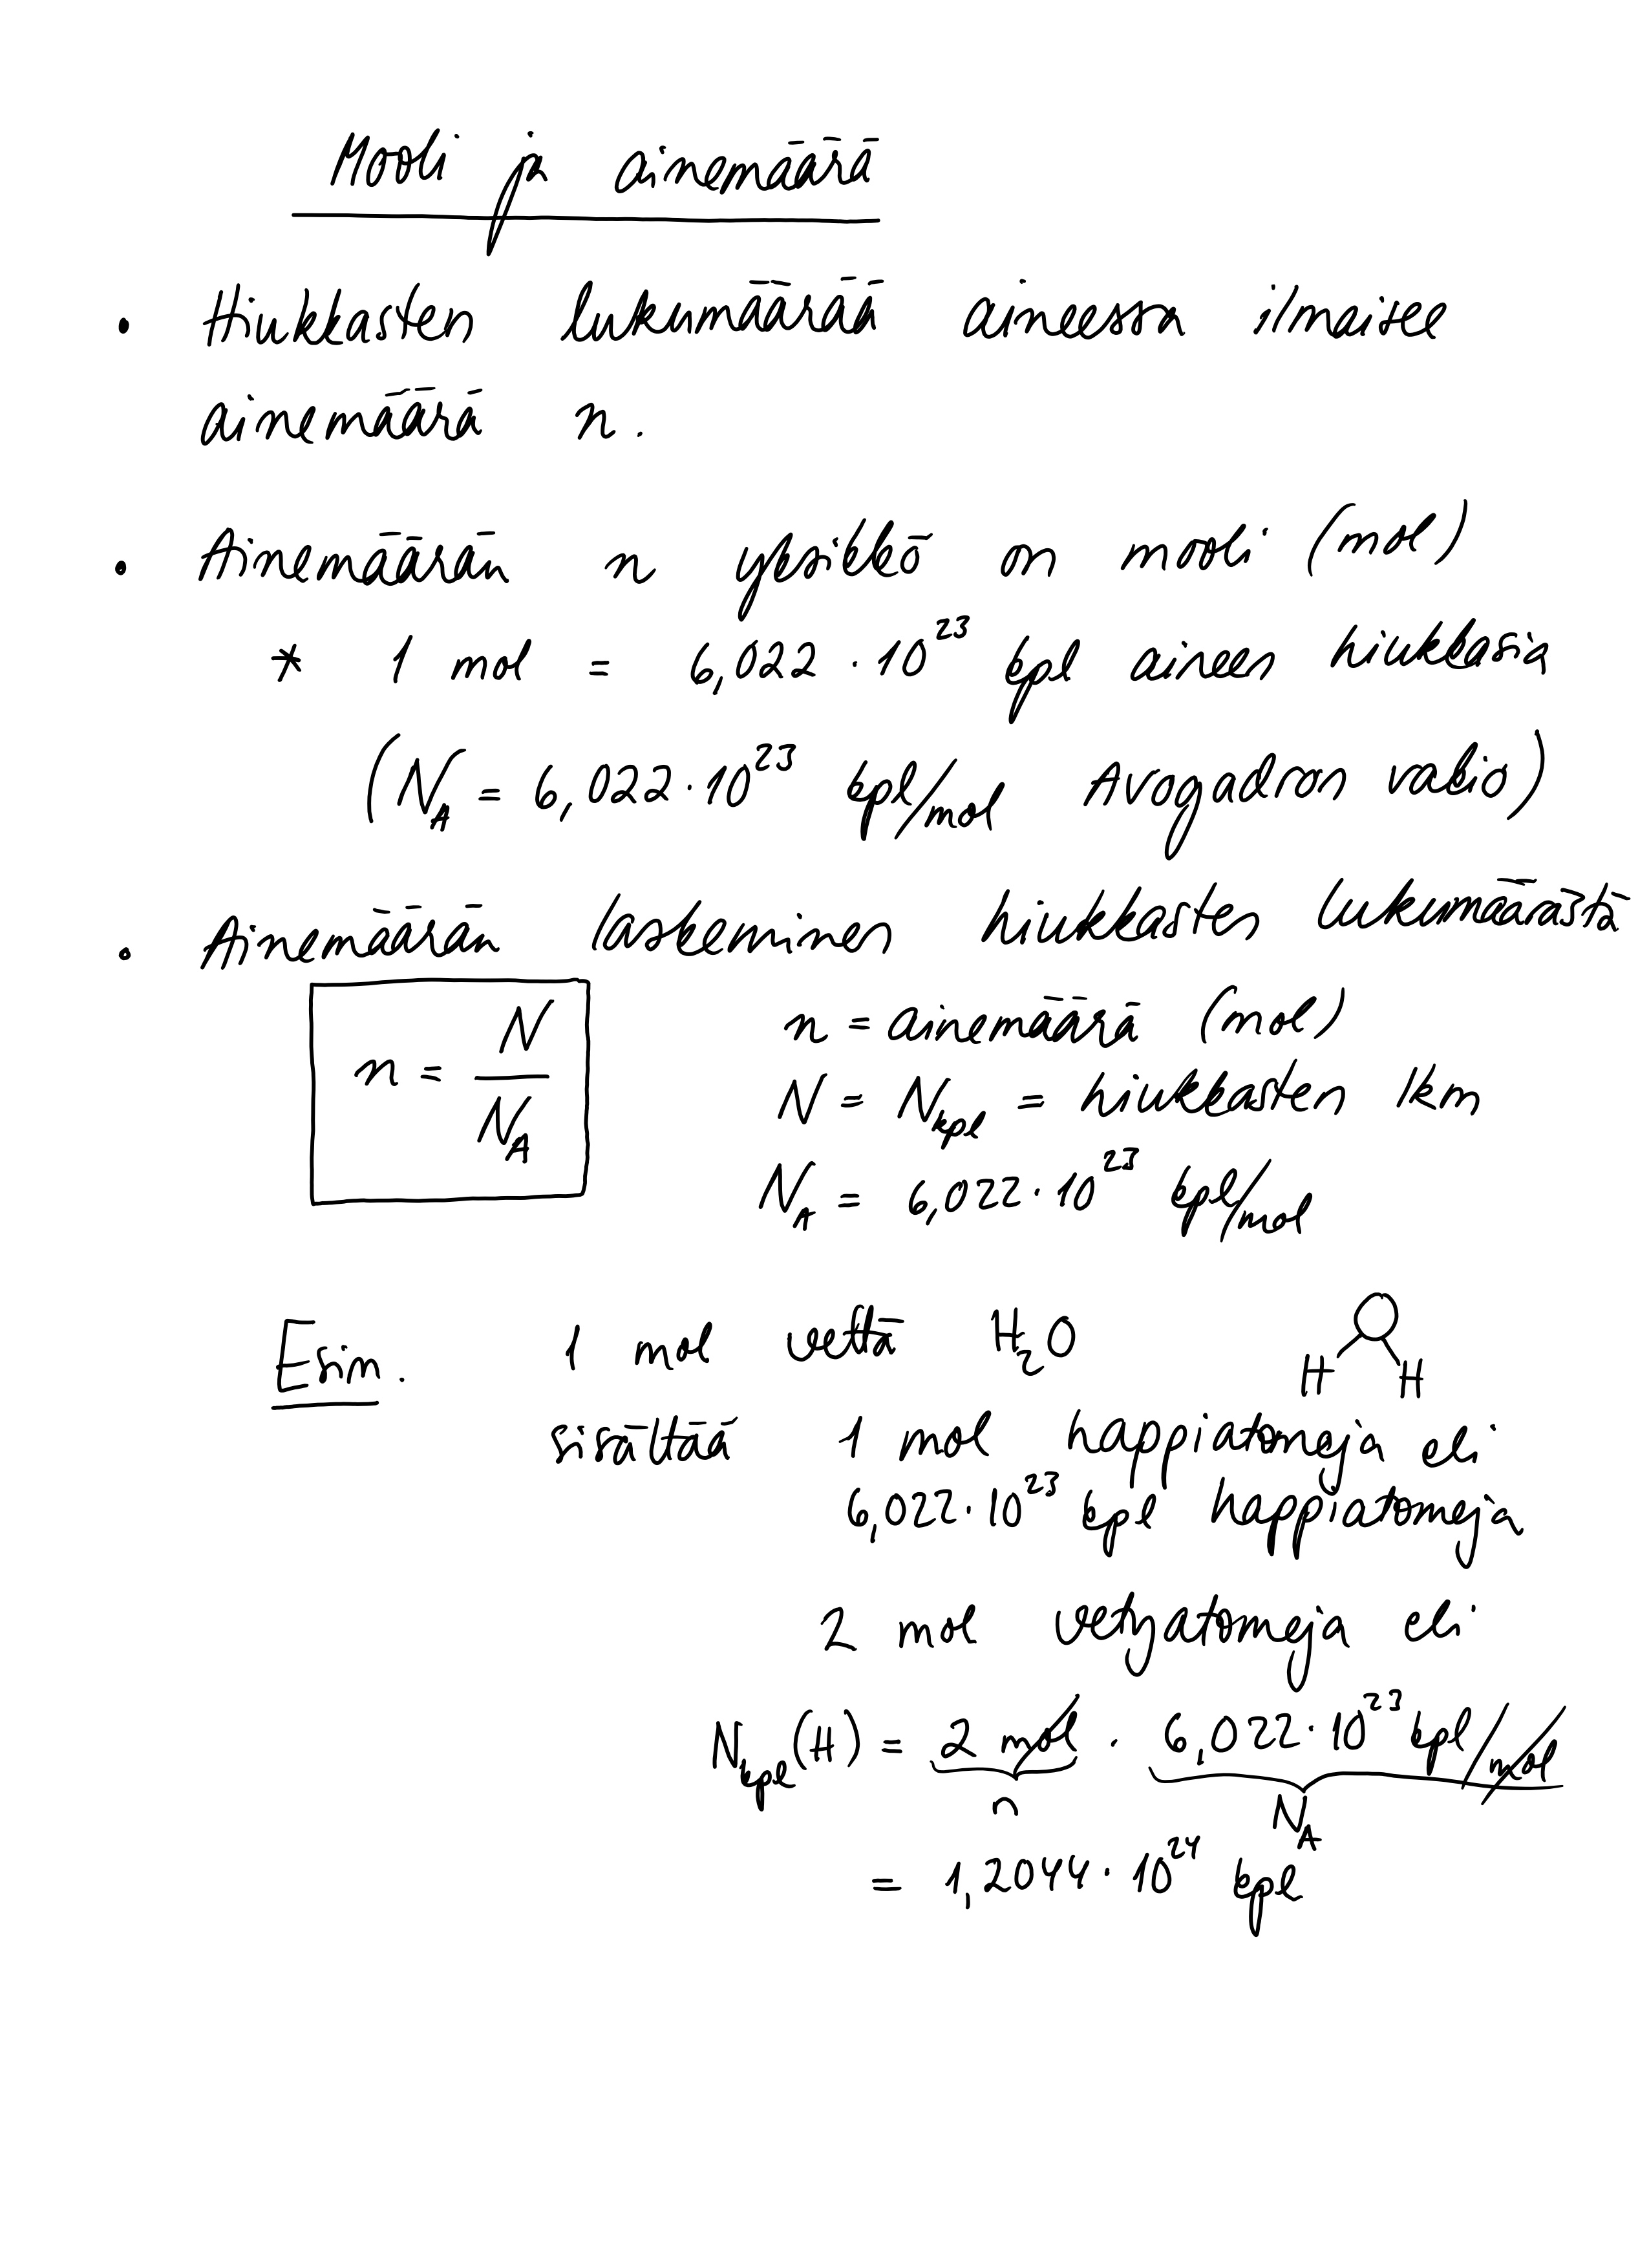 Mooli ja ainemäärä
• Hiukkasten lukumäärää aineessa ilmaisee
ainemäärä n.
• Ainemäärän n yksikkö on mooli (mol)
* 1 mol = 6,022 · 10²³ kpl aineen hiukkasia
(N_A = 6,022 · 10²³ kpl/mol Avogadron vakio)
• Ainemäärän laskeminen hiukkasten lukumäärästä
n = N/N_A
n = ainemäärä (mol)
N = N_kpl = hiukkasten lkm
N_A = 6,022 · 10²³ kpl/mol
Esim. 1 mol vettä H₂O
O
H H
sisältää 1 mol happiatomeja eli
6,022 · 10²³ kpl happiatomeja
2 mol vetyatomeja eli
N_kpl(H) = 2 mol · 6,022 · 10²³ kpl/mol
n N_A
= 1,2044 · 10²⁴ kpl